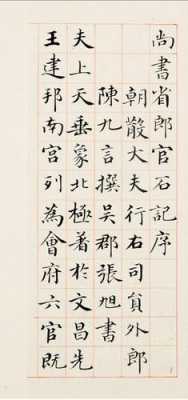 尚書省郎官石記序
朝散大夫行右司員外郎
陳九言撰吳郡張旭書
夫上天垂象北極著於文昌先
王建邦南宮列為會府六官既